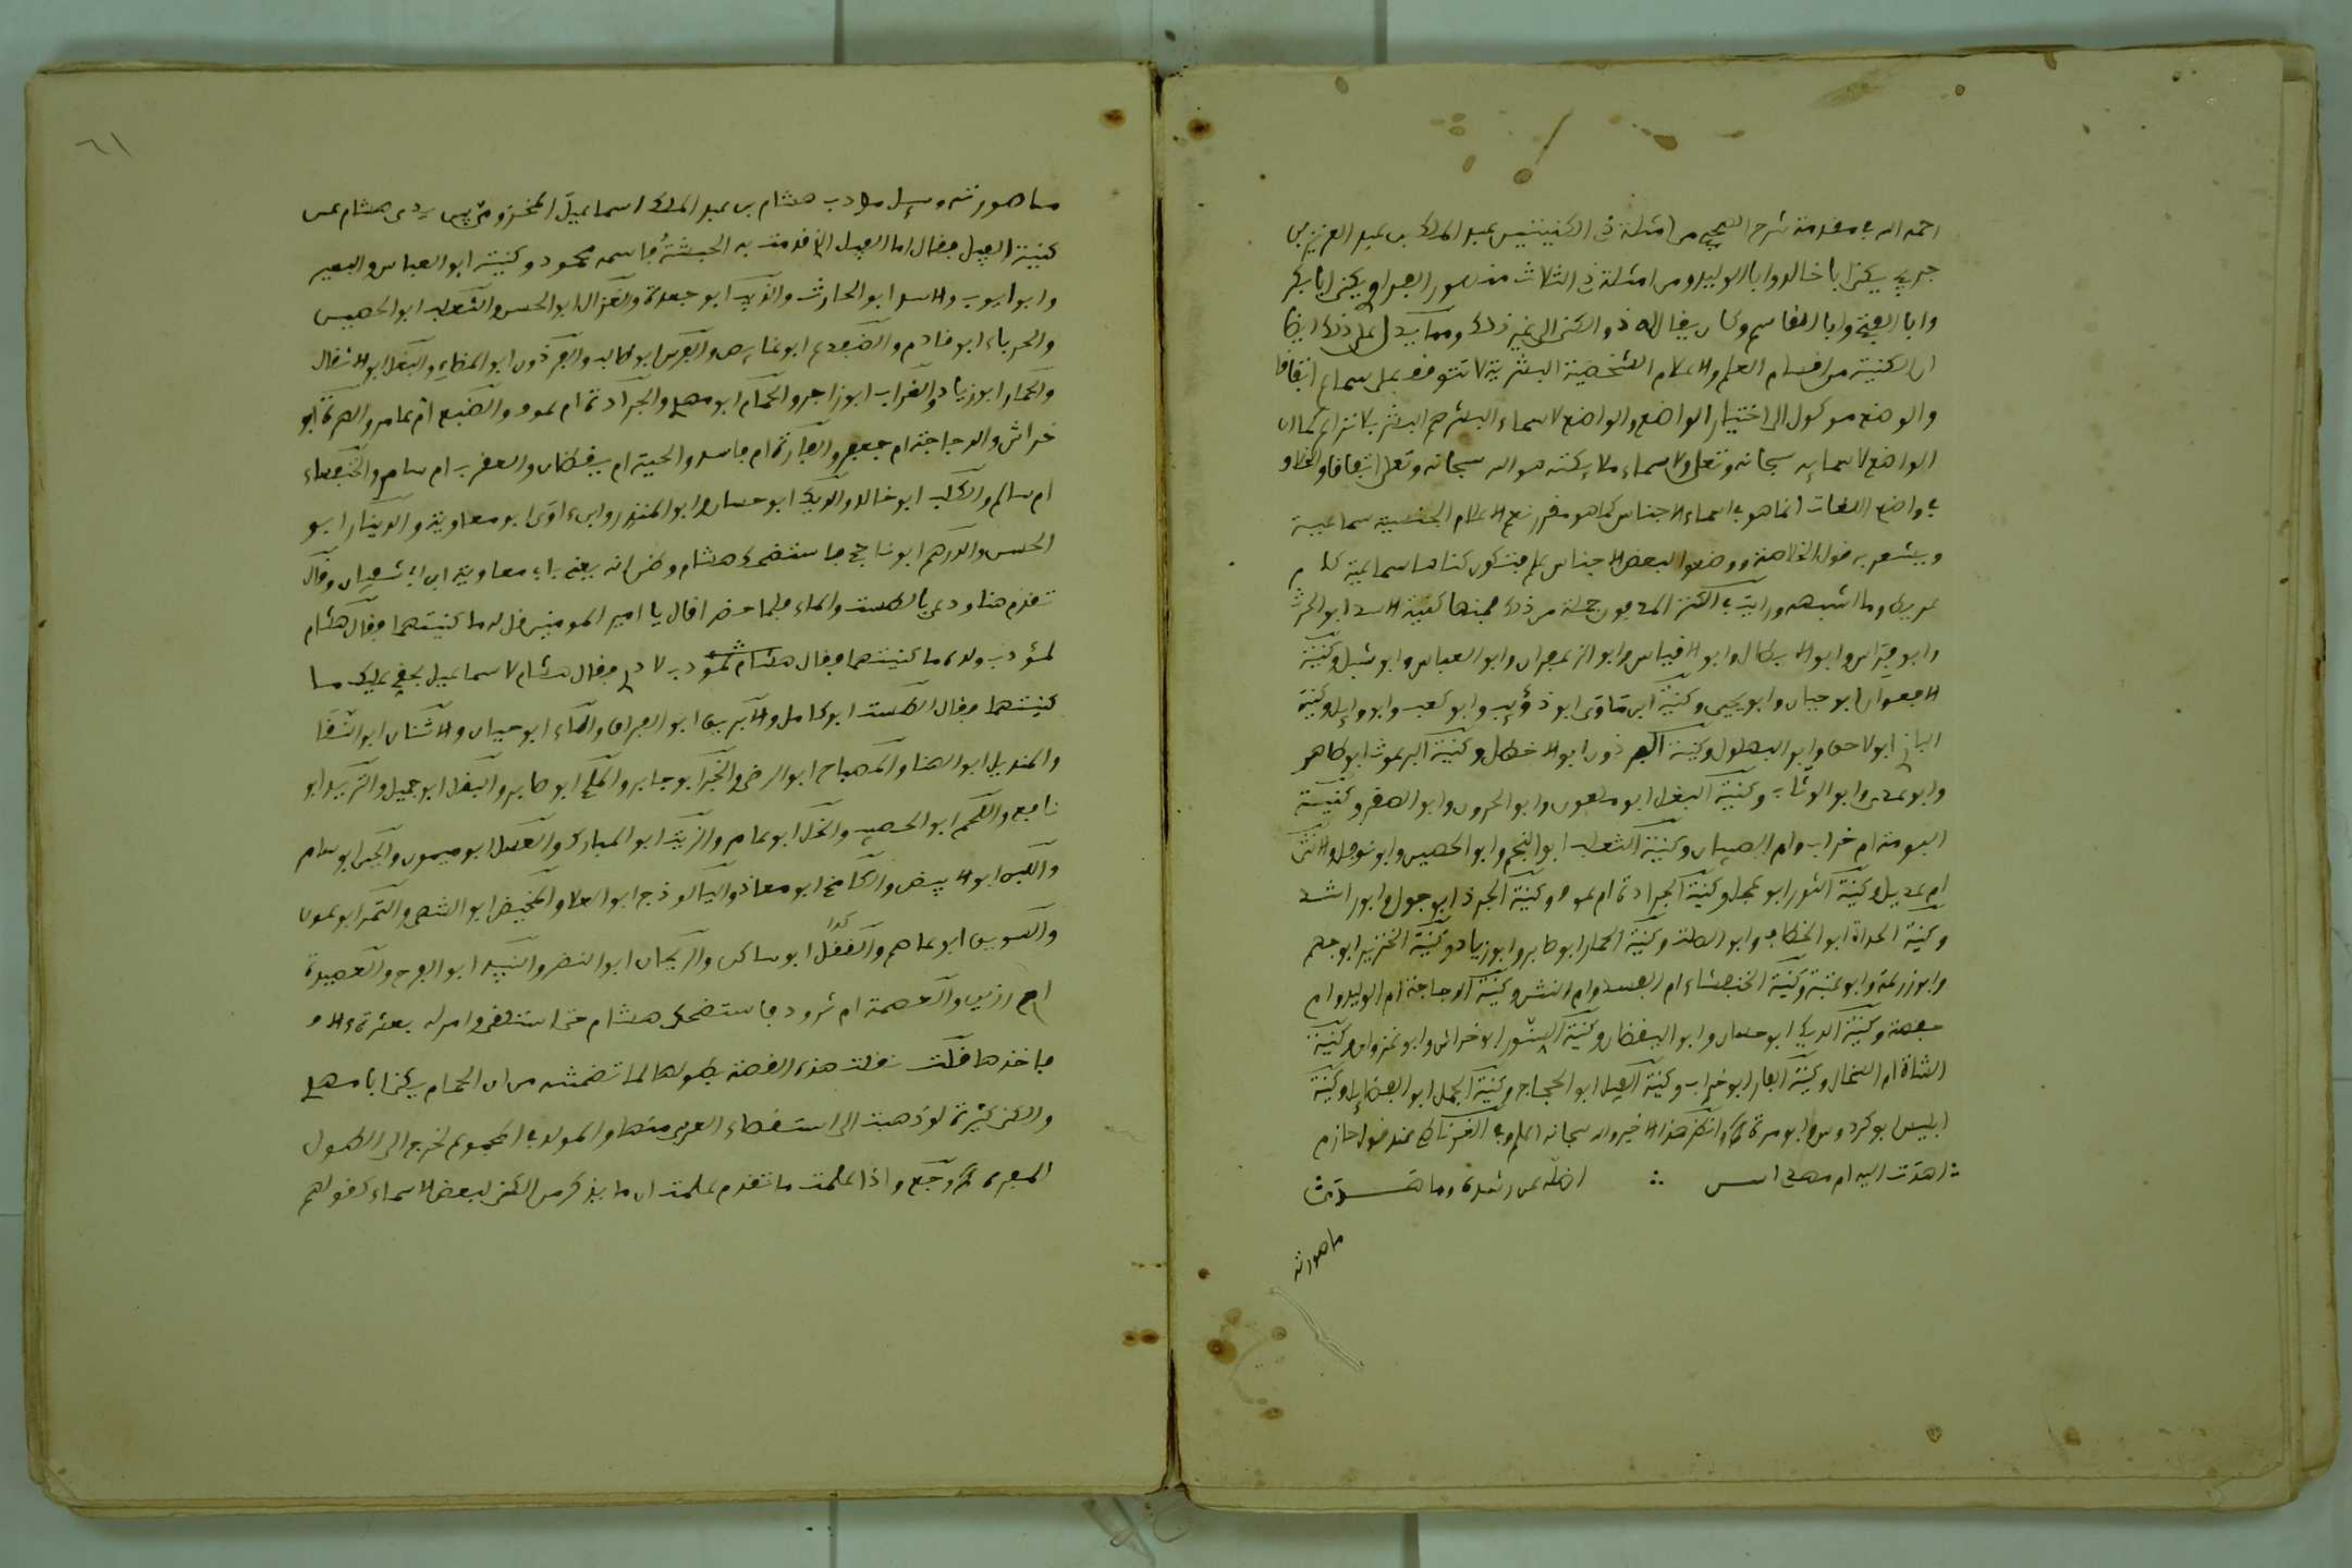 احمد الله في مقدمة شرح من امثلة ذي الكنيتين عبد الملك بن عبد العزيز بن
جريج يكنى ابا خالد وابا الوليد ومن امثلة ذي الثلاث منصور يكنى ابا بكر
وابا الفتح وابا القاسم وكان يقال له ذو الكنى الى غير ذلك ومما يدل على ذلك ايضا
ان الكنية من اقسام العلم والاعلام الشخصية البشرية لا تتوقف على سماع اتفاقا
والوضع موكول الى اختيار الواضع والواضع لاسماء البشر هم البشر بلا نزاع كما ان
الواضع لاسمايه سبحانه وتعلى ولاسماء ملايكته هو الله سبحانه وتعلى اتفاقا والخلاف
في واضع اللغات انما هو في اسماء الاجناس كما هو مقرر نعم الاعلام الجنسية سماعية
ويشعر به قول الخلاصة ووضعوا لبعض الاجناس علم فتكون كناها سماعية كام
عريط وما اشبهه ورايت في الكنز المدفون جملة من ذلك فمنها كنية الاسد ابو الحرث
وابو فراس وابو الابطال وابو وابو الزعفران وابو العباس وابو شبل وكنية
الافعوان ابو حيان وابو يحيى وكنية ابن ءاوى ابو ذؤيب وابو كعب وابو وايل وكنية
الباز ابو لاحق وابو البهلول وكنية البرذون ابو الاخطل وكنية البرغوث ابو طاهر
وابو عدي وابو الوثاب وكنية البغل ابو ملعون وابو الحرون وابو الصقر وكنية
البومة ام خراب وام الصبيان وكنية الثعلب ابو النجم وابو الحصين وابو نوفل والانثى
ام عديل وكنية الثور ابو عجل وكنية الجرادة ام عوف وكنية الجرذ ابو جوال وابو راشد
وكنية الحداة ابو الخطاف وابو الصلت وكنية الحمار ابو صابر وابو زياد وكنية الخنزير ابو جهم
وابو زرعة وابو عتبة وكنية الخنفساء ام الفسو وام النتن وكنية الدجاجة ام الوليد وام
حفصة وكنية الديك ابو حسان وابو اليقظان وكنية السنور ابو خراش وابو غزوان وكنية
الشاة ام السخال وكنية الفار ابو خراب وكنية الفيل ابو الحجاج وكنية الجمل ابو وكنية
ابليس ابو كردوس وابو مرة وانظر هذا الاخير والله سبحانه اعلم وفي الغرناطي عند قول حازم
اهدت اليه ام مهدي اسى ∴ اضله عن رشده وما هدت
ما هو رثه
٦١
ما هو رثه وسئل مؤدب هشام بن عبد الملك اسماعيل المخزومي بين يدي هشام عن
كنية الفيل فقال اما الفيل الذي قدمت به الحبشة فاسمه محمود وكنيته ابو العباس والبعير
وابو ايوب والاسد ابو الحارث والذيب ابو جعدة والغزال ابو الحسن والثعلب ابو الحصين
والحرباء ابو قادم والضفدع ابو والفرس ابو طالب والبرذون ابو المضاء والبغل ابو الاثقال
والحمار ابو زياد والغراب ابو زاجر والحمام ابو مهدي والجرادة ام عوف والضبع ام عامر والهرة ابو
خراش والدجاجة ام جعفر والفارة ام فاسد والحية ام يقظان والعقرب ام سام والخنفساء
ام سالم والكلب ابو خالد والديك ابو حسان وابو المنذر وابن ءاوى ابو معاوية والدينار ابو
الحسن والدرهم ابو ناجح فاستضحك هشام وظن انه يعني بابي معاوية ابن ابي سفيان وقال
تقدم هنا ودعى بالطست والماء فلما حضرا قال يا امير المومنين قل له ما كنيتهما فقال هشام
لمؤدب ولده ما كنيتهما فقال هشام لمؤدب فقال هشام لاسماعيل بحقي عليك ما
كنيتهما فقال الطست ابو كامل والابريق ابو والماء ابو حيان والاشنان ابو النقا
والمنديل ابو الهنا والمصباح ابو الرضى والخبز ابو جابر والملح ابو صابر والبقل ابو جميل والثريد ابو
نافع واللحم ابو الخصيب والخل ابو عامر والزيت ابو المبارك والعسل ابو ميمون والجبن ابو سام
واللبن ابو الابيض والكامخ ابو معاذ والفالوذج ابو العلا والخبيص ابو الشهي والتمر ابو عون
والسويق ابو عاصم والفلفل كذا ابو ساكن والريحان ابو النضر والنبيذ ابو الفرج والعصيدة
ام رزين والعصمة ام ثرود فاستضحك هشام حتى استلقى وامر له بعشرة ءالاف
فاخذها قلت نقلت هذه القصة بطولها لما تضمنته من ان الحمام يكنى ابا مهدي
والكنى كثيرة لو ذهبت الى استقصاء العربي منها والمولد في المجموع لخرج الى الطول
المفرط ورجع واذا علمت ما تقدم علمت ان ما يذكر من الكنى لبعض الاسماء كقولهم